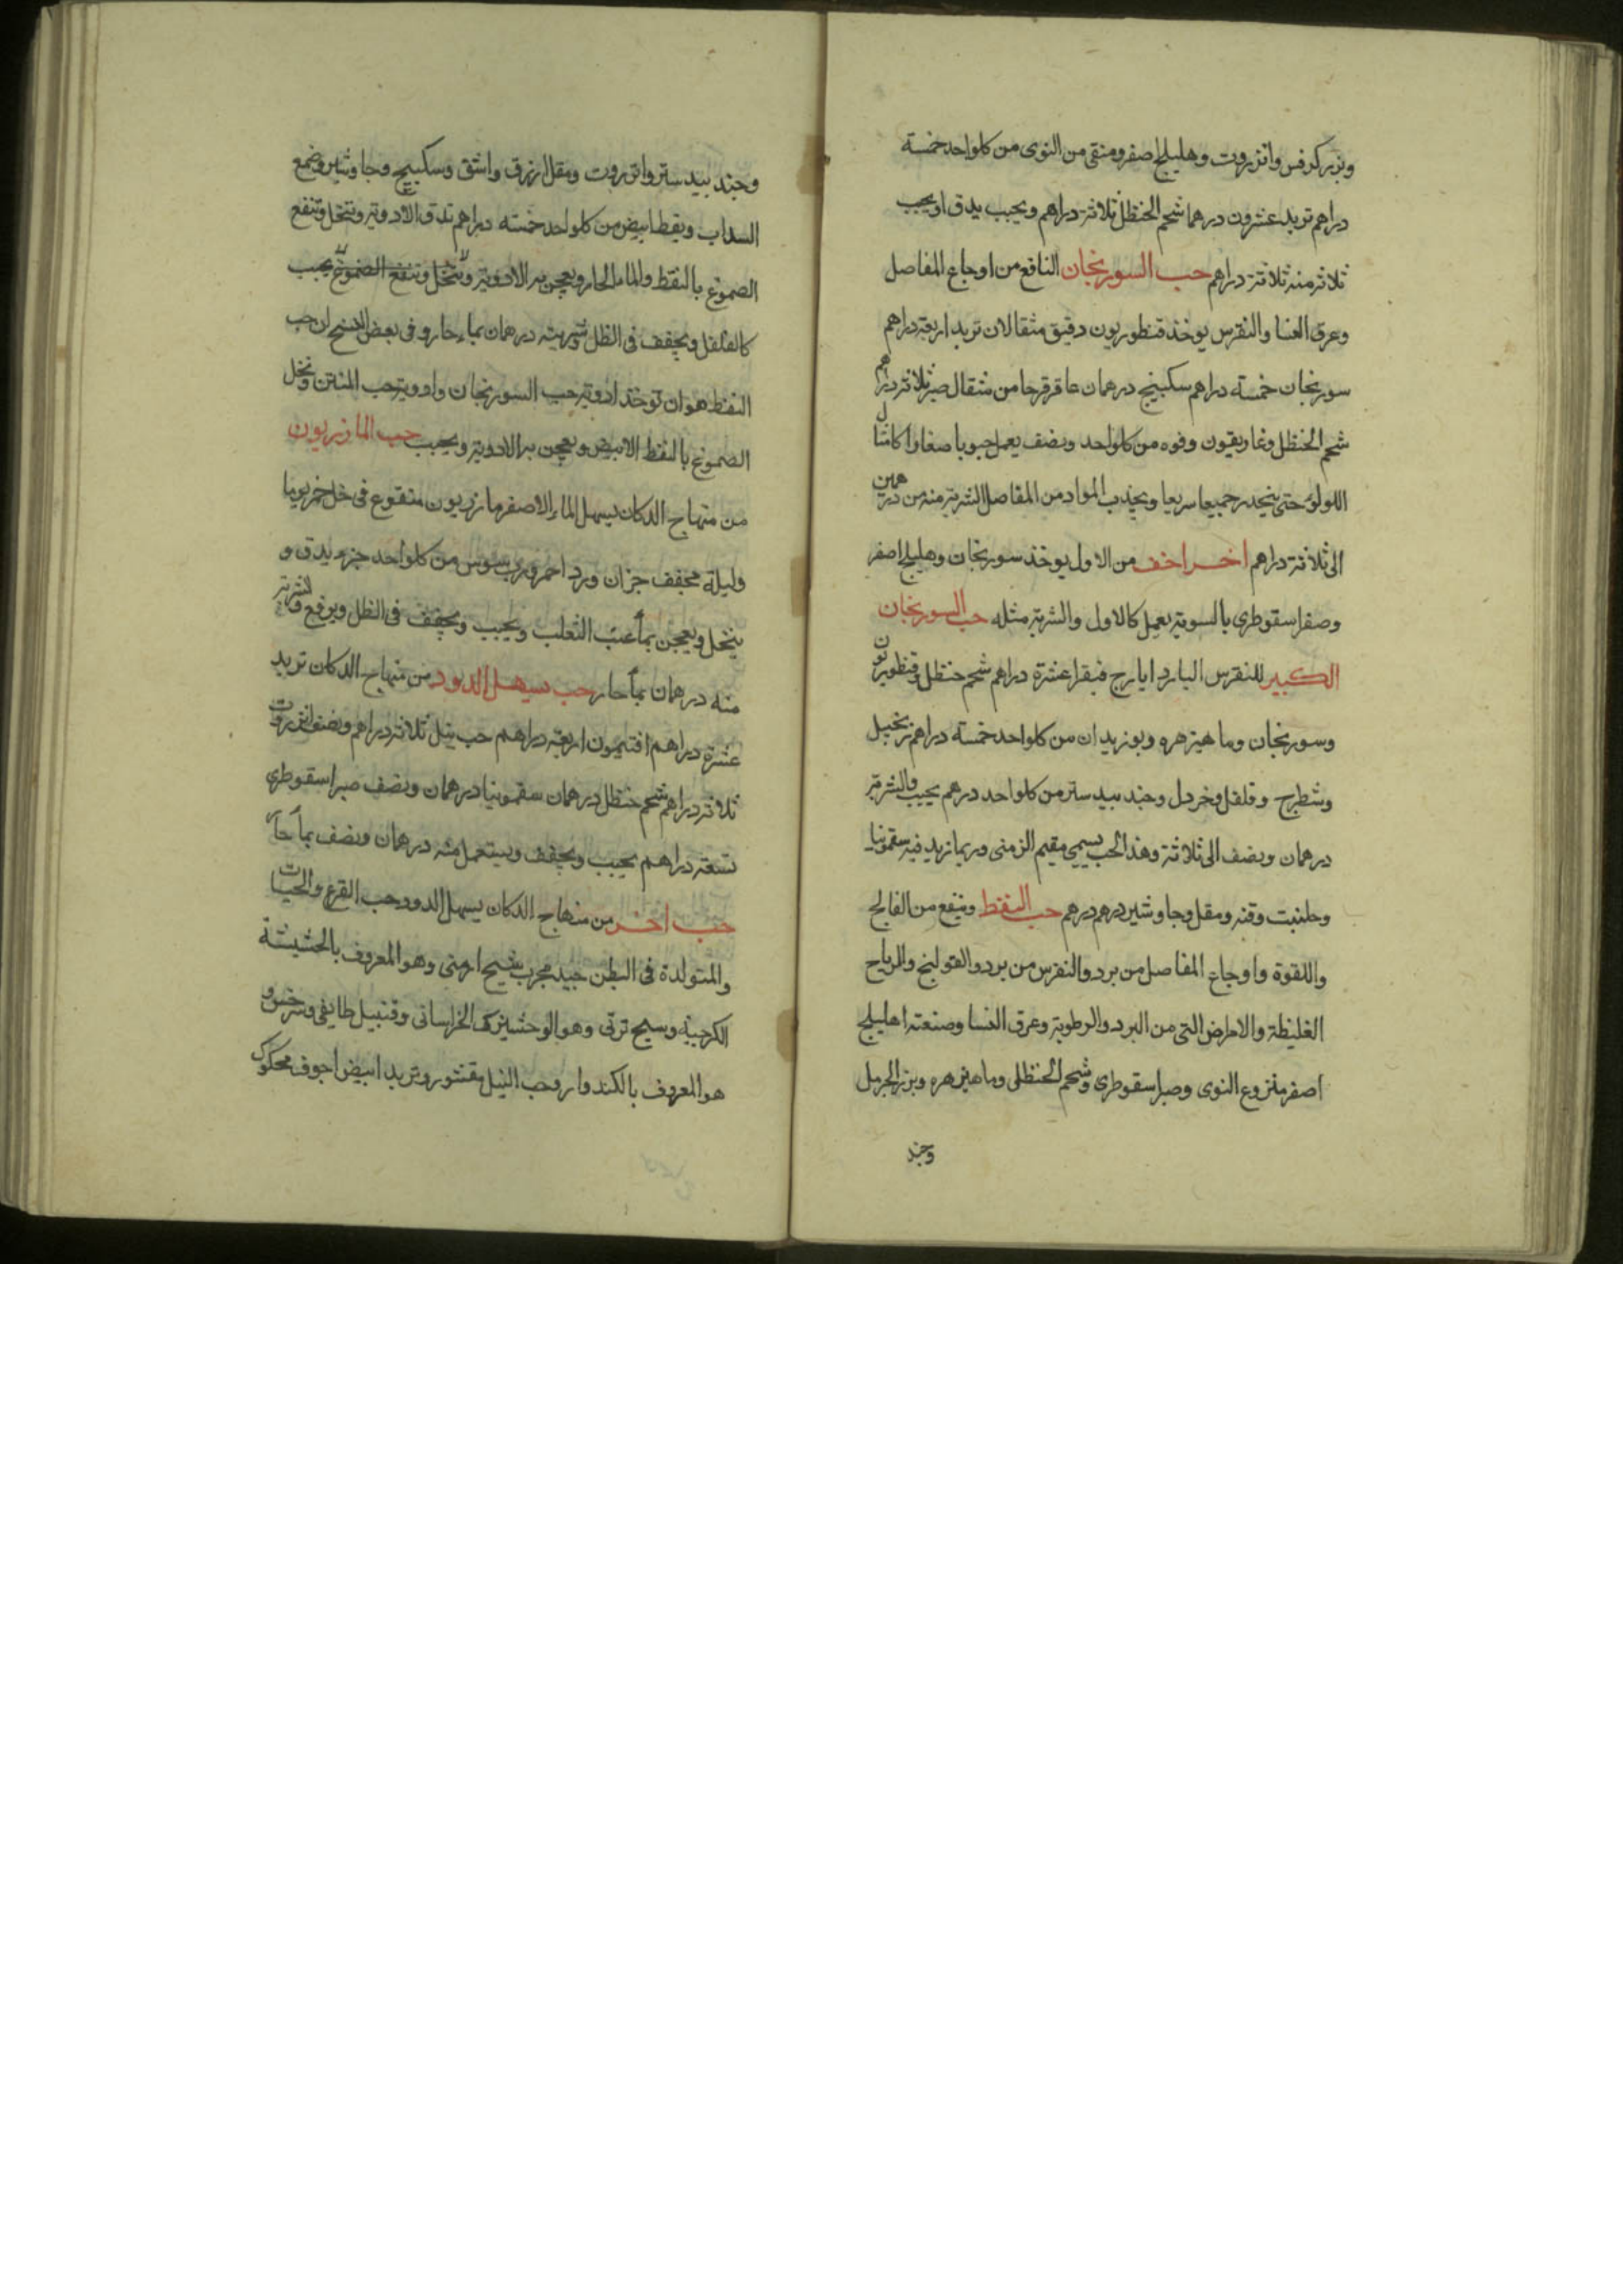 وبزركرفس وانزروت وهليلج اصفر ومنقى من النوى من كلواحد خمسة
دراهم تربد عشرون درهما شحم الحنظل ثلاثة دراهم ويحبب يدق اويحبب
ثلاثه منه ثلاثة دراهم حب السورنجان النافع من اوجاع المفاصل
وعرق النسا والنقرس يوخذ قنطوريون دقيق مثقالان تربد اربعة دراهم
سورنجان خمسة دراهم سكبينج درهمان عاقرقرحا من مثقال صبر ثلاثة دراهم
شحم الحنظل وغاريقون وفوه من كلواحد ونصف يعمل حبوبا صغارا كامثال
اللولو حتى ينحدر جميعا سريعا ويجذب المواد من المفاصل الشربة منه من درهمين
الى ثلاثة دراهم اخر اخف من الاول يوخذ سورنجان وهليلج اصفر
وصفراسقوطرى بالسوية يعمل كالاول والشربة مثله حب السورنجان
الكبير للنقرس البارد ايارج فيقرا عشرة دراهم شحم حنظل وقنطوريون
وسورنجان وماهيزهره وبوزيدان من كلواحد خمسة دراهم زنجبيل
وشطرج وفلفل وخردل وجندبيدستر من كلواحد درهم يحبب والشربة
درهمان ونصف الى ثلاثة وهذا الحب يسمى مقيم الزمنى وربما زيد فيه سقمونيا
وحلتيت وقنه ومقل وجاوشير درهم درهم حب النفط وينفع من الفالج
واللقوة واوجاع المفاصل من برد والنقرس من برد والقولنج والرياح
الغليظة والامراض التى من البرد والرطوبة وعرق النسا وصنعته اهليلج
اصفر منزوع النوى وصبر اسقوطرى وشحم الحنظل وماهيزهره وبزر الحرمل
وجند
وجند بيدستر وانزروت ومقل ازرق واشق وسكبينج وجاوشير وصمغ
السداب ونفط ابيض من كلواحد خمسة دراهم تدق الادوية وتنخل وتنقع
الصموغ بالنفط والماء الحار ويعجن به الادوية وتنخل وتنقع الصموغ يحبب
كالفلفل ويجفف فى الظل شربته درهمان بماء حار وفى بعض النسخ ان حب
النفط هو ان توخذ ادوية حب السورنجان وادوية حب المنتن وتحل
الصموغ بالنفط الابيض ويعجن به الادوية ويحبب حب المازريون
من منهاج الدكان يسهل الماء الاصفر مازريون منقوع فى خل خمر يوما
وليلة مجفف جزان ورد احمر ورب سوس من كلواحد جزء يدق و
ينخل ويعجن بماء عنب الثعلب ويحبب ويجفف فى الظل ويرفع والشربة
منه درهمان بماء حار حب يسهل الدود من منهاج الدكان تربد
عشرة دراهم افتيمون اربعة دراهم حب نيل ثلاثة دراهم ونصف انزروت
ثلاثة دراهم شحم حنظل درهمان سقمونيا درهمان ونصف صبر اسقوطرى
تسعة دراهم يحبب ويجفف ويستعمل منه درهمان ونصف بماء حار
حب اخر من منهاج الدكان يسهل الدود وحب القرع والحيات
والمتولدة فى البطن جيد مجرب شيح ارمنى وهو المعروف بالحشيشة
الكرجية وسيح تركى وهو الوخشيزك الخراسانى وقنبيل طايفى وسرخس و
هو المعروف بالكندوار وحب النيل مقشور وتربد ابيض اجوف محكوك